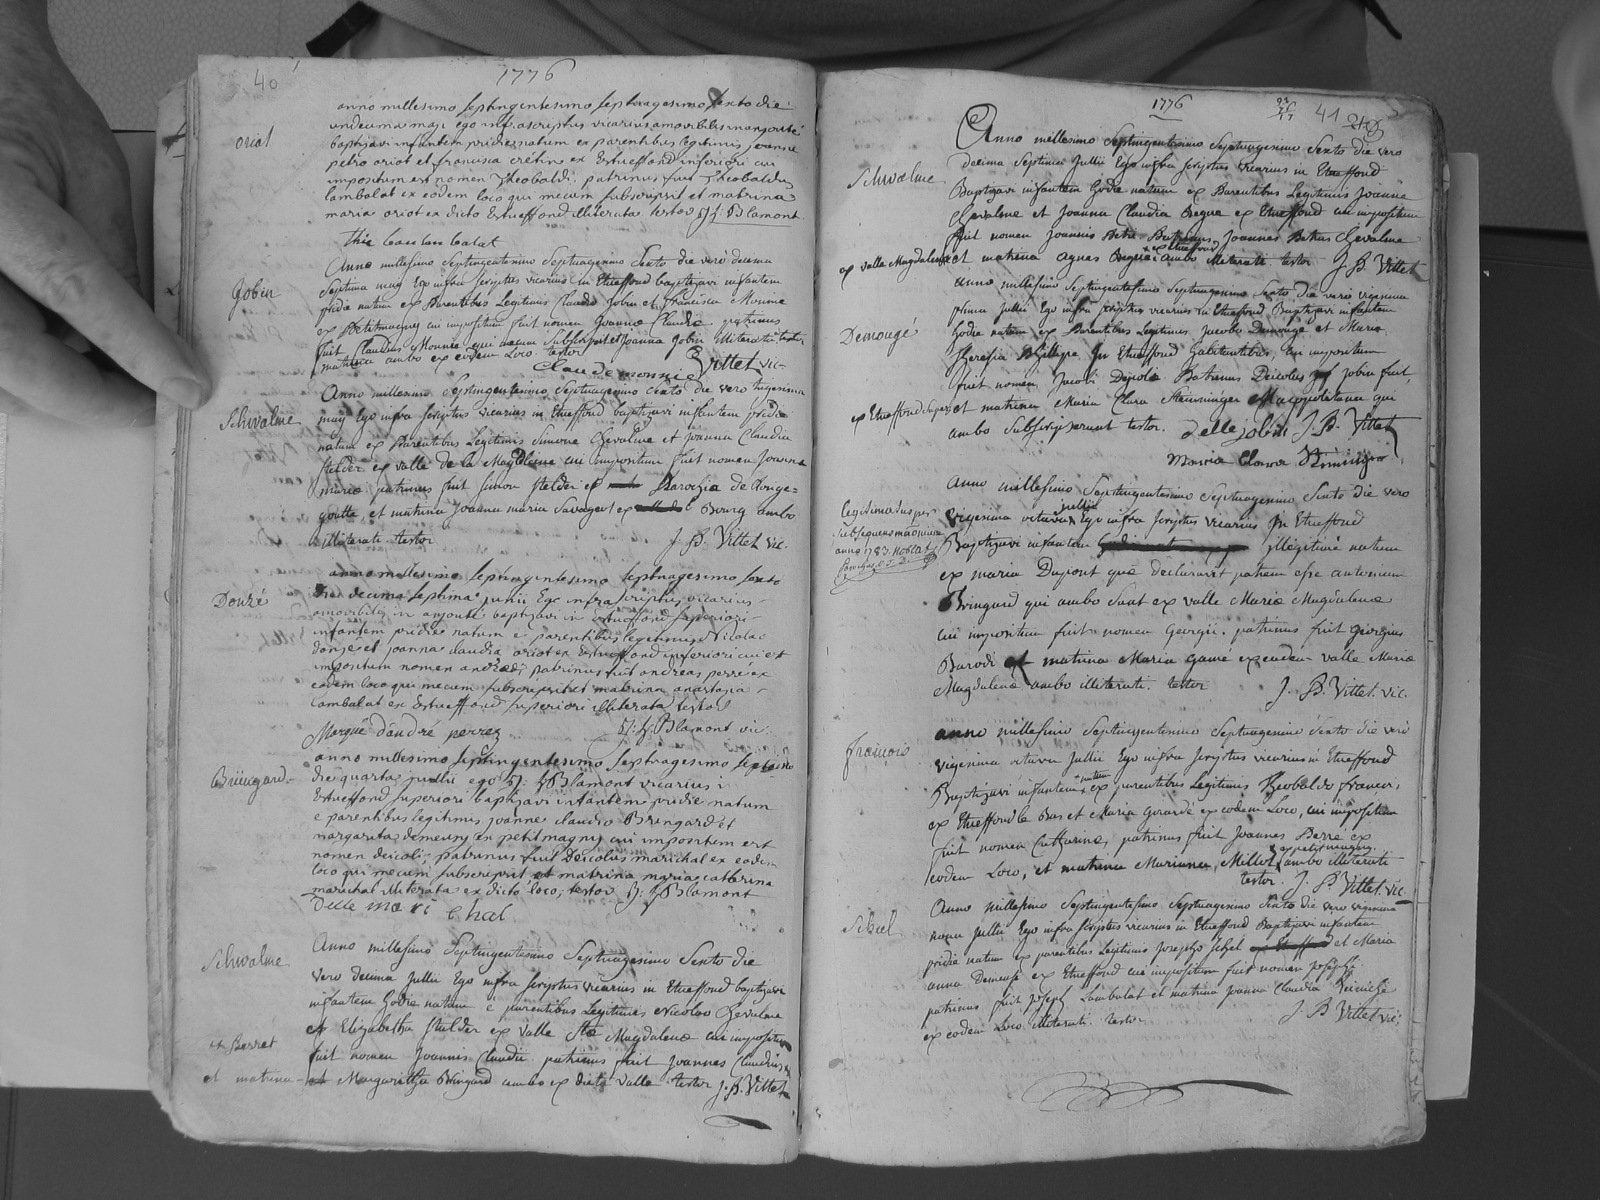 40
1776
oriol
anno millesimo septingentesimo septuagesimo sexto die
undecima maji ego infrascriptus vicarius amovibilis in anjouté
baptizavi infantem pridie natum ex parentibus legitimis joanne
petro oriol et francisca crétine ex Estueffond inferiori cui
impositum est nomen Theobaldi: patrinus fuit Theobaldus
lambalat ex eodem loco qui mecum subscripsit et matrina
maria oriol ex dicto Estueffond illiterata testor Blamont.
thie bau lan balat
Gobin
Anno millesimo Septingentesimo Septuagesimo Sexto die verò decima
Septima maÿ Ego infra scriptus vicarius in Etueffond baptizavi infantem
pridie natum ex Parentibus Legitimis Claudio Jobin et francisca Monnie
ex Petitmagny cui impositum fuit nomen Joannæ Claudiæ patrinus
fuit Claudius Monnie qui mecum Subscripsit et Joanna Gobin illiterata testor
matrina ambo ex eodem Loco testor
Claude monnie Vittet vic.
Schwalme
Anno millesimo Septingentesimo Septuagesimo Sexto die vero trigesima
maÿ Ego infra scriptus vicarius in Etueffond baptizavi infantem pridie
natum ex Parentibus Legitimis Simone Chevalme et Joanna Claudia
Stelder ex valle de la Magdleine cui impositum fuit nomen Joanna
maria patrinus fuit Simon Stelder ex Parochia de Rouge=
goutte, et matrina Joanna maria Savageot ex Bourg ambo
illiterati testor J. B. Vittet vic.
Donzé
anno millesimo septingentesimo septuagesimo sexto
die decima septima junii Ego infra scriptus vicarius
amovibilis in anjoute baptizavi in estueffond superiori
infantem pridie natum e parentibus legitimis Nicolao
donzé et joanna claudia oriol ex estueffond inferiori cui est
impositum nomen andreæ; patrinus fuit andreas perré ex
eodem loco qui mecum subscripsit et matrina anastasia
lambalat ex Estueffond superiori illiterata testor
Marque dandré perrez Blamont vic.
Briengard
anno millesimo septingentesimo septuagesimo sexto
die quarta jullii ego Blamont vicarius i
Estueffond superiori baptizavi infantem pridie natum
e parentibus legitimis joanne claudio Brengard et
margarita demeusy ex petitmagny cui impositum est
nomen deicoli; patrinus fuit deicolus marichal ex eodem
loco qui mecum subscripsit et matrina maria catterina
marichal illiterata ex dicto loco; testor Blamont
delle mari chal
Schwalme
Anno millesimo Septingentesimo Septuagesimo Sexto die
vero decima Jullii Ego infra scriptus vicarius in Etueffond baptizavi
infantem hodie natum è parentibus Legitimis Nicolao Chevalme
et Elizabetha Stelder ex valle Stæ Magdalenæ cui impositum
ex Serret
fuit nomen Joannis Claudii patrinus fuit Joannes Claudius
et matrina Margaritha Bringard ambo ex dicta valle testor J. B. Vittet
1776
41
Schwalme
Anno millesimo Septingentesimo Septuagesimo Sexto die vero
decima Septima Jullii Ego infra scriptus vicarius in Etueffond
Baptizavi infantem hodie natum ex Parentibus Legitimis Joanne
Chevalme et Joanna Claudia Begue ex Etueffond cui impositum
fuit nomen Joannis Petri Patrinus Joannes Petrus Chevalme
ex valle Magdalenæ et matrina agnes Begue ex Etueffond ambo illiterati testor J B Vittet
Demougé
anno millesimo Septingentesimo Septuagesimo Sexto die vero vigesima
prima Jullii Ego infra scriptus vicarius in Etueffond Baptizavi infantem
hodie natum ex Parentibus Legitimis Jacobo Demougé et Maria
Theresia Philippe In Etueffond habitantibus, cui impositum
fuit nomen Jacobi Deicole Patrinus Deicolus Jobin fuit,
ex Etueffond Super et matrina Maria Clara Steminger Macropolitana qui
ambo Subscripserunt testor. delle jobin J. B. Vittet
Maria Clara Steminger
Anno millesimo Septingentesimo Septuagesimo Sexto die vero
legitimatus per
subsequens matrimonium
anno 1783.
vigesima octava jullii Ego infra scriptus vicarius In Etueffond
Baptizavi infantem illegitimè natum
ex maria Dupont quæ declaravit patrem esse antonium
Bringard qui ambo sunt ex valle Mariæ Magdalenæ
cui impositum fuit nomen Georgii. patrinus fuit Georgius
Barodi et matrina Maria Gamé ex eadem valle Mariæ
Magdalenæ ambo illiterati. testor J. B. Vittet. vic.
françois
anno millesimo Septingentesimo Septuagesimo Sexto die verò
vigesima octava Jullii Ego infra scriptus vicarius in Etueffond
Baptizavi infantem natum ex parentibus Legitimis Theobaldo francois
ex Etueffond le Bas et Maria Girarde ex eodem Loco, cui impositum
fuit nomen Catharinæ, patrinus fuit Joannes Perre ex
eodem Loco, et matrina Marianna Millot ex petit magny ambo illiterati
testor. J. B Vittet. vic
Schiel
Anno millesimo Septingentesimo Septuagesimo Sexto die vero vigesima
nona Jullii Ego infra scriptus vicarius in Etueffond Baptizavi infantem
pridie natum ex parentibus Legitimis Josepho Schiel et Maria
anna Demeuse ex Etueffond cui impositum fuit nomen Josephi
patrinus fuit Joseph Lambalat et matrina Joanna Claudia Reiniche
ex eodem Loco illiterati. testor J. B Vittet vic.